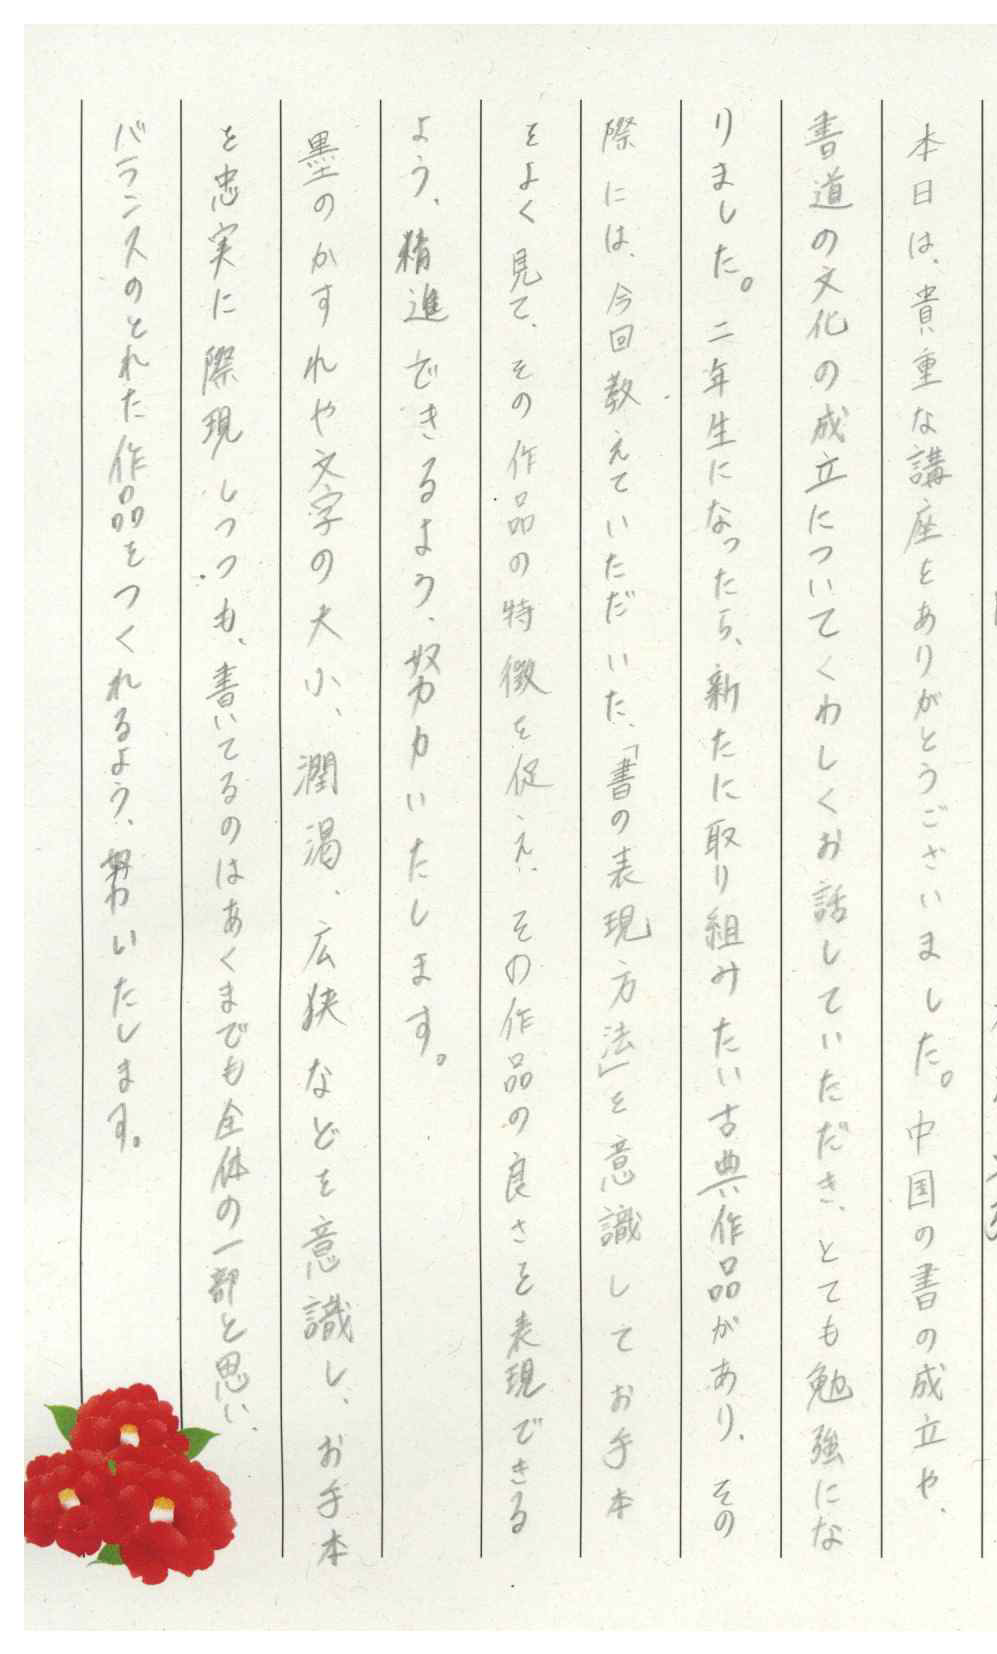 本日は、貴重な講座をありがとうございました。中国の書の成立や、
書道の文化の成立についてくわしくお話していただき、とても勉強にな
りました。二年生になったら、新たに取り組みたい古典作品があり、その
際には、今回教えていただいた、「書の表現方法」を意識してお手本
をよく見て、その作品の特徴を促え、その作品の良さを表現できる
よう、精進できるよう、努力いたします。
墨のかすれや文字の大小、潤渇、広狭などを意識し、お手本
を忠実に際現しつつも、書いてるのはあくまでも全体の一部と思い、
バランスのとれた作品をつくれるよう、努いたします。